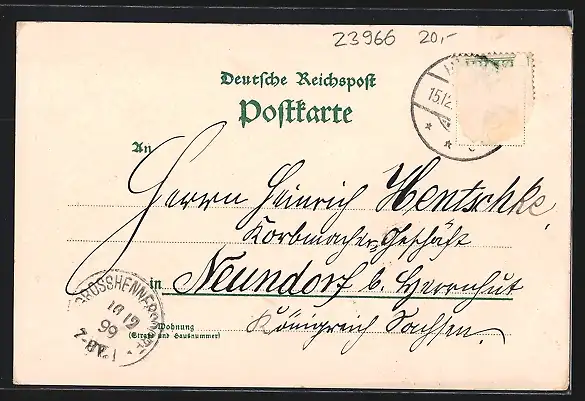 23966 20,-
Deutsche Reichspost
Postkarte
15.12.
An
Herrn Heinrich Hentschke,
Korbmacher-Geschäft
in Neundorf b. Herrnhut
Wohnung
(Straße und Hausnummer)
Königreich Sachsen.
GROSSHENNERSDORF
16 12
99
7-8V.